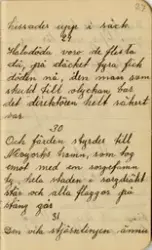 hissades upp i säck
29
Halvdöda voro de flesta
då, på däcket fyra fick
döden nå, den man som
skuld till olyckan bar
det direktören helt säkert
var
30
Och färden styrdes till
Newyorks hamn, som tog
emot med en sorgefamn
ty hela staden i sorgdräkt
står och alla flaggor på
stång går
31
Den vita stjärnlinjen ännu